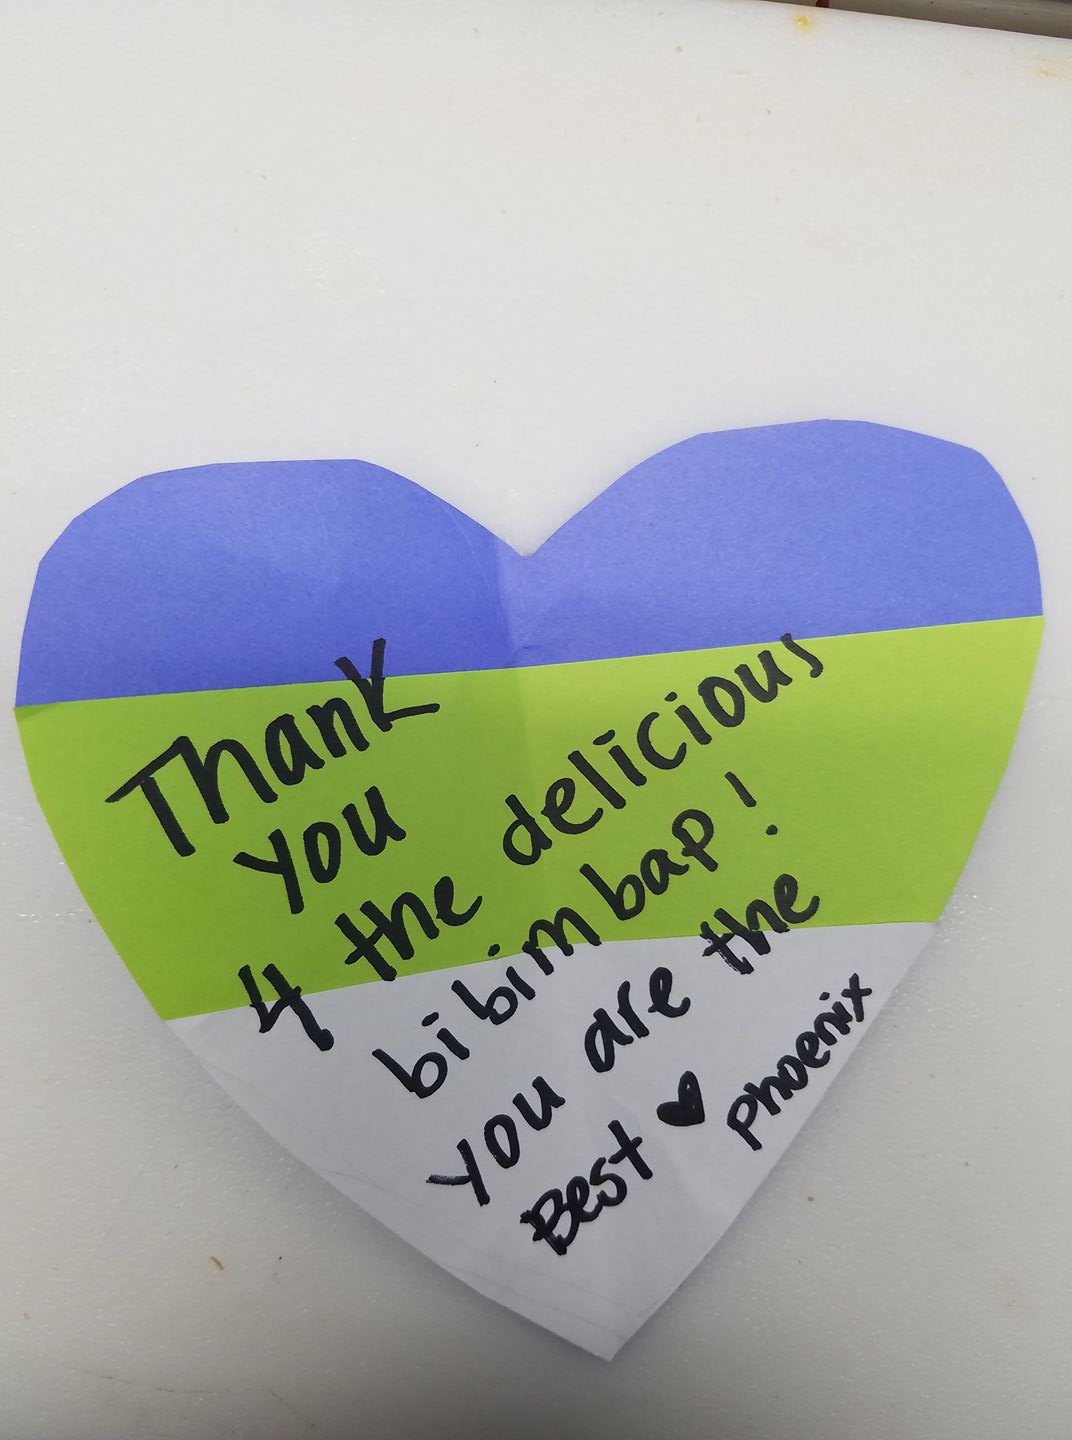 Thank
you
4 the delicious
bibimbap!
you are the
Best ♥ Phoenix